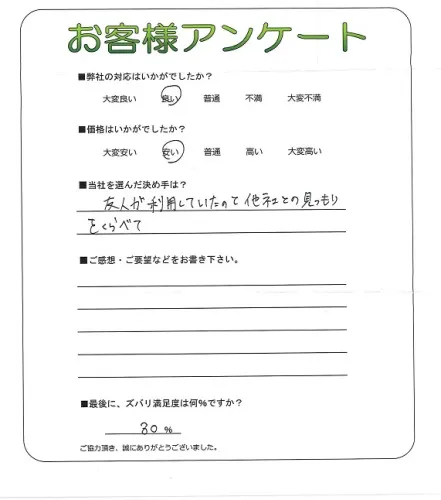 お客様アンケート
■弊社の対応はいかがでしたか?
大変良い 良い 普通 不満 大変不満
■価格はいかがでしたか?
大変安い 安い 普通 高い 大変高い
■当社を選んだ決め手は?
友人が利用していたのと他社との見つもり
をくらべて
■ご感想・ご要望などをお書き下さい。
■最後に、ズバリ満足度は何%ですか?
80%
ご協力頂き、誠にありがとうございました。